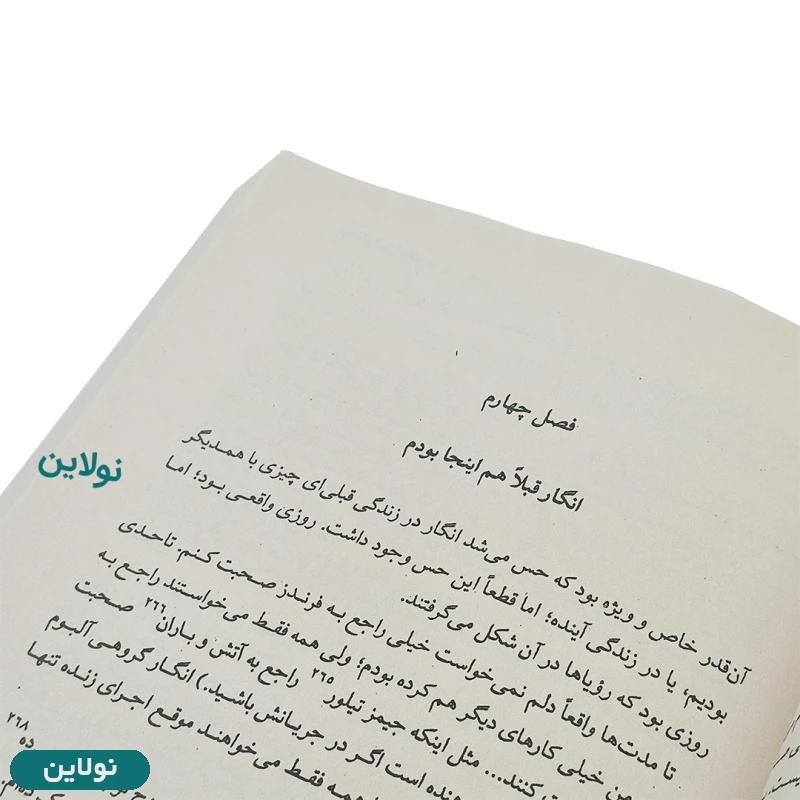 فصل چهارم
انگار قبلاً هم اینجا بودم
آن‌قدر خاص و ویژه بود که حس می‌شد انگار در زندگی قبلی‌ای چیزی با همدیگر
بودیم، یا در زندگی آینده؛ اما قطعاً این حس وجود داشت. روزی واقعی بود؛ اما
روزی بود که رؤیاها در آن شکل می‌گرفتند.
تا مدت‌ها واقعاً دلم نمی‌خواست خیلی راجع به فرندز صحبت کنم. تاحدی
من خیلی کارهای دیگر هم کرده بودم؛ ولی همه فقط می‌خواستند راجع به
کنند... مثل اینکه جیمز تیلور ۲۶۵ راجع به آتش و باران ۲۶۶ صحبت
است اگر در جریانش باشید.) انگار گروهی آلبوم
همه فقط می‌خواهند موقع اجرای زنده تنها
۲۶۸
نولاین
نولاین